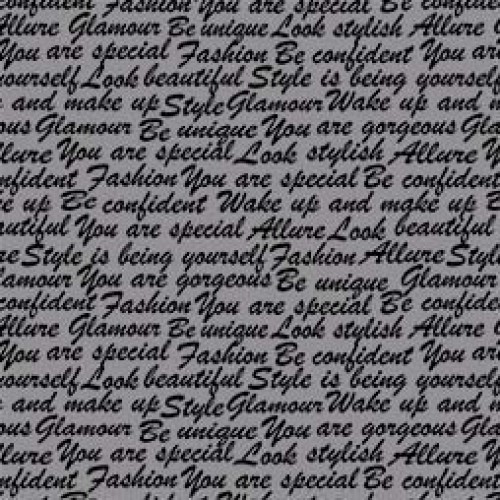 confident Fashion You are special Be confident
Allure Glamour Be unique Look stylish Allure
You are special Fashion Be confident You are
yourself Look beautiful Style is being yourself
and make up Style Glamour Wake up and
Glamour Be unique You are gorgeous
Allure You are special Look stylish Allure
confident Fashion You are special Be confident
up Be confident Wake up and make up Be
beautiful You are special Allure Look beautiful
Style is being yourself Fashion Allure Style
Glamour You are gorgeous Be unique Glamour
confident Fashion You are special Be confident
Allure Glamour Be unique Look stylish Allure
You are special Fashion Be confident You are
yourself Look beautiful Style is being yourself
and make up Style Glamour Wake up and
Glamour Be unique You are gorgeous
Allure You are special Look stylish Allure
confident Fashion You are special Be confident